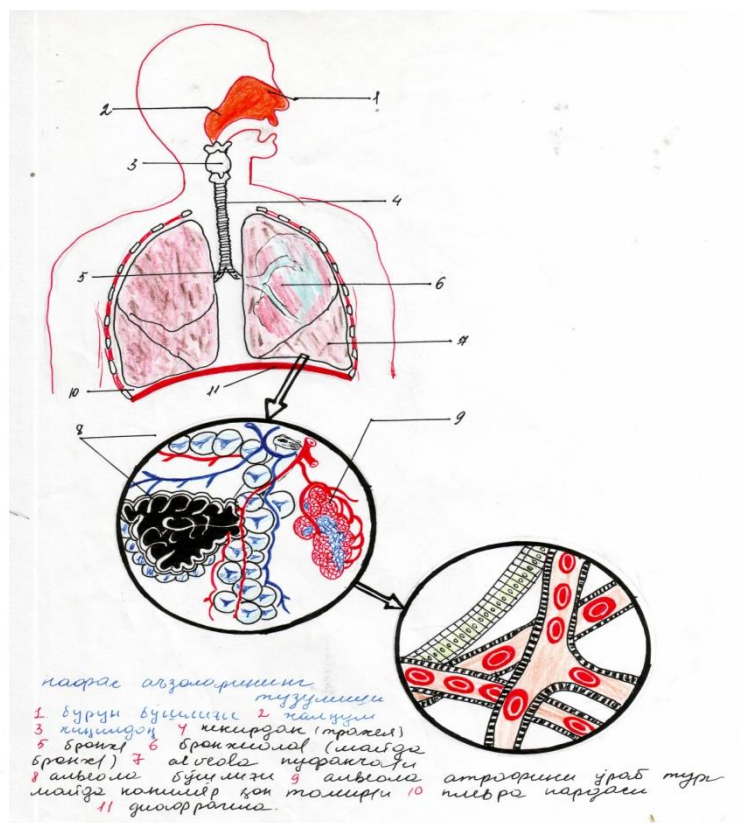 1
2
3
4
5
6
7
10
11
8
9
нафас аъзоларининг
тузулиши
1. бурун бўшлиғи 2 халқум
3 ҳиқилдоқ 4 кекирдак (трахея)
5 бронх 6 (майда
бронх) 7 пуфакчали
8 альвеола бўшлиғи 9 альвеола атрофини ўраб тур
майда капиляр қон томири 10 плевра пардаси
11 диафрагма.